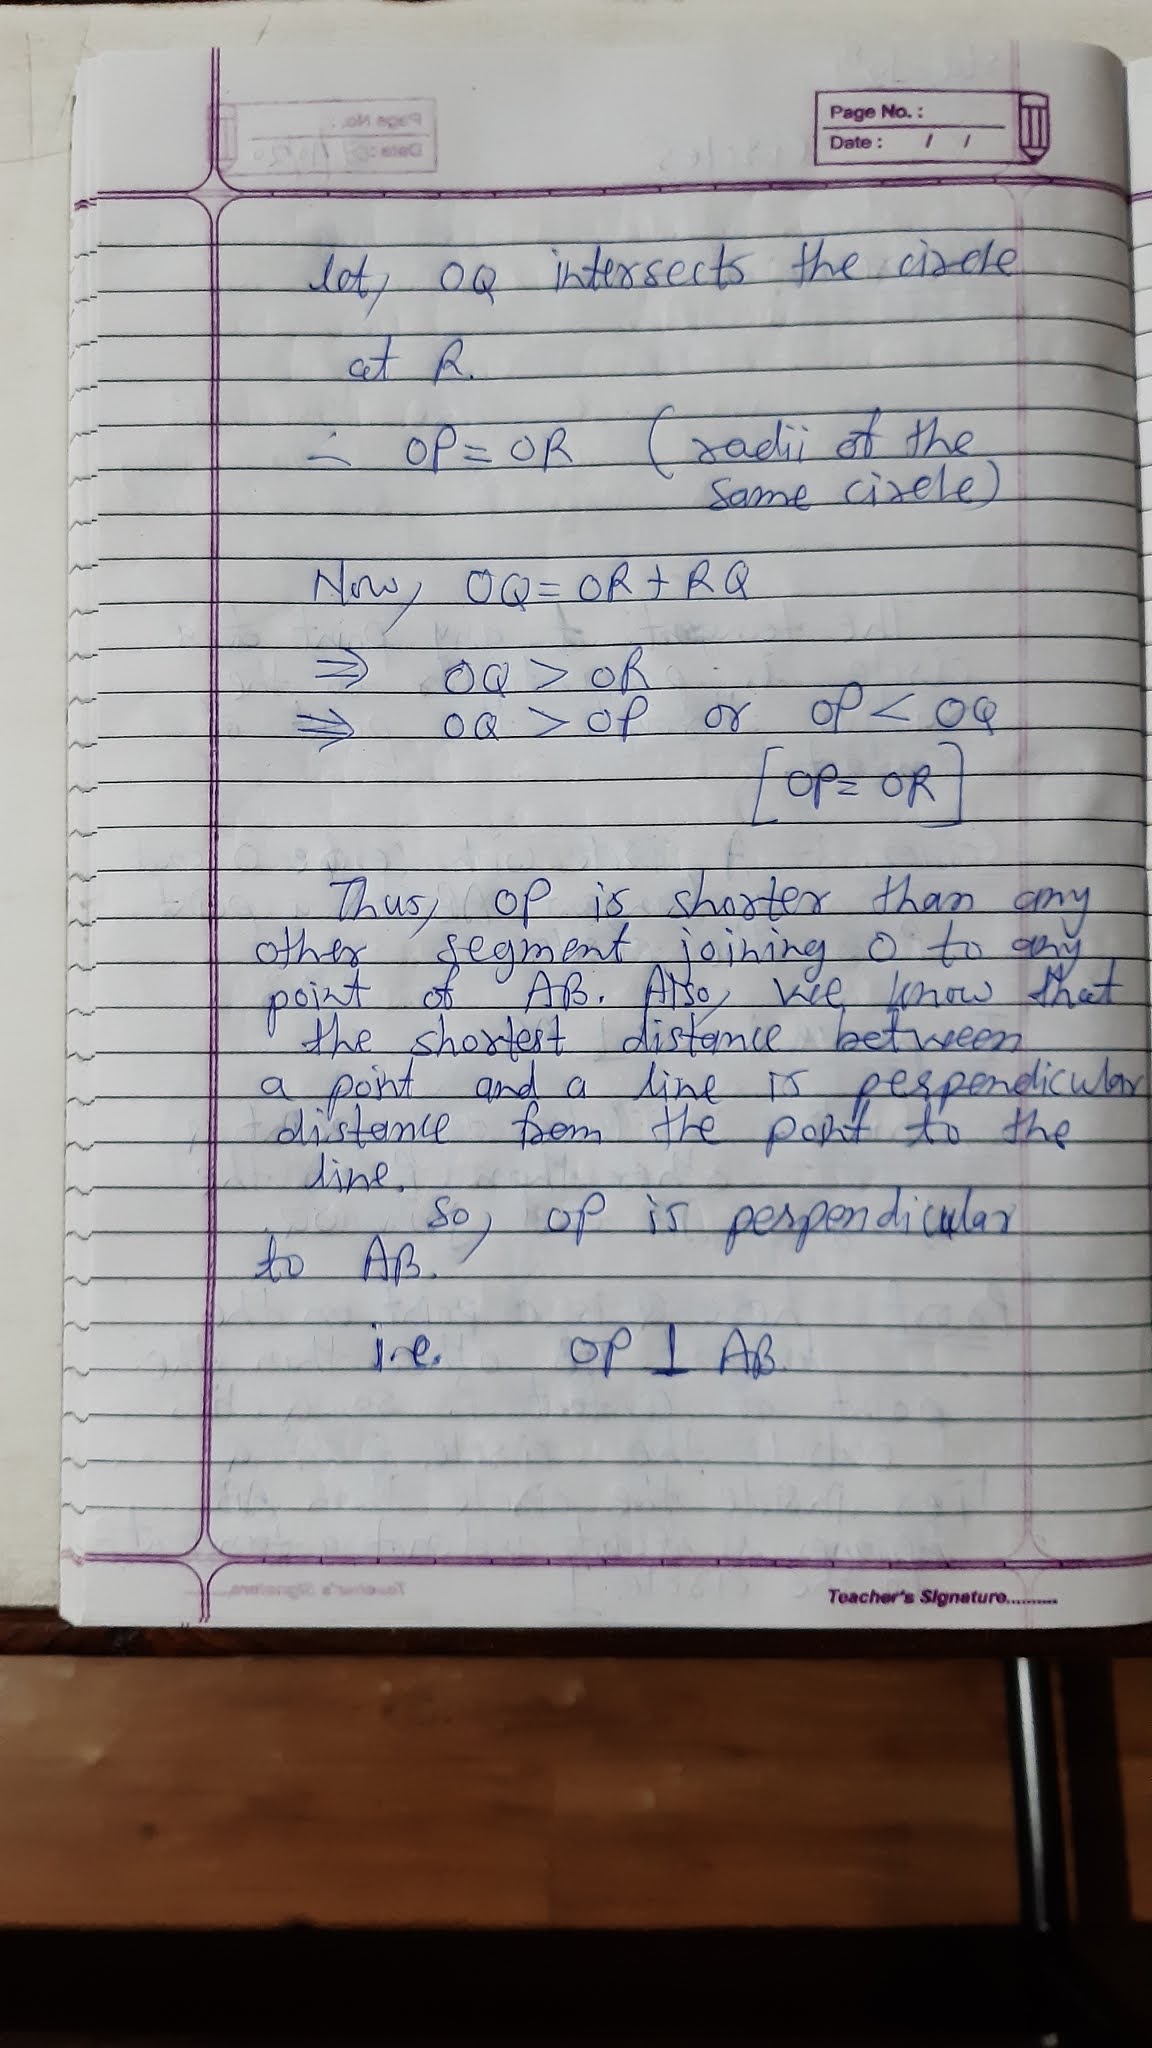 Page No. :
Date : / /
let, OQ intersects the circle
at R.
∴ OP = OR (radii of the
same circle)
Now, OQ = OR + RQ
⇒ OQ > OR
⇒ OQ > OP or OP < OQ
[OP = OR]
Thus, OP is shorter than any
other segment joining O to any
point of AB. Also, we know that
the shortest distance between
a point and a line is perpendicular
distance from the point to the
line.
So, OP is perpendicular
to AB.
i.e. OP ⊥ AB
Teacher's Signature..........